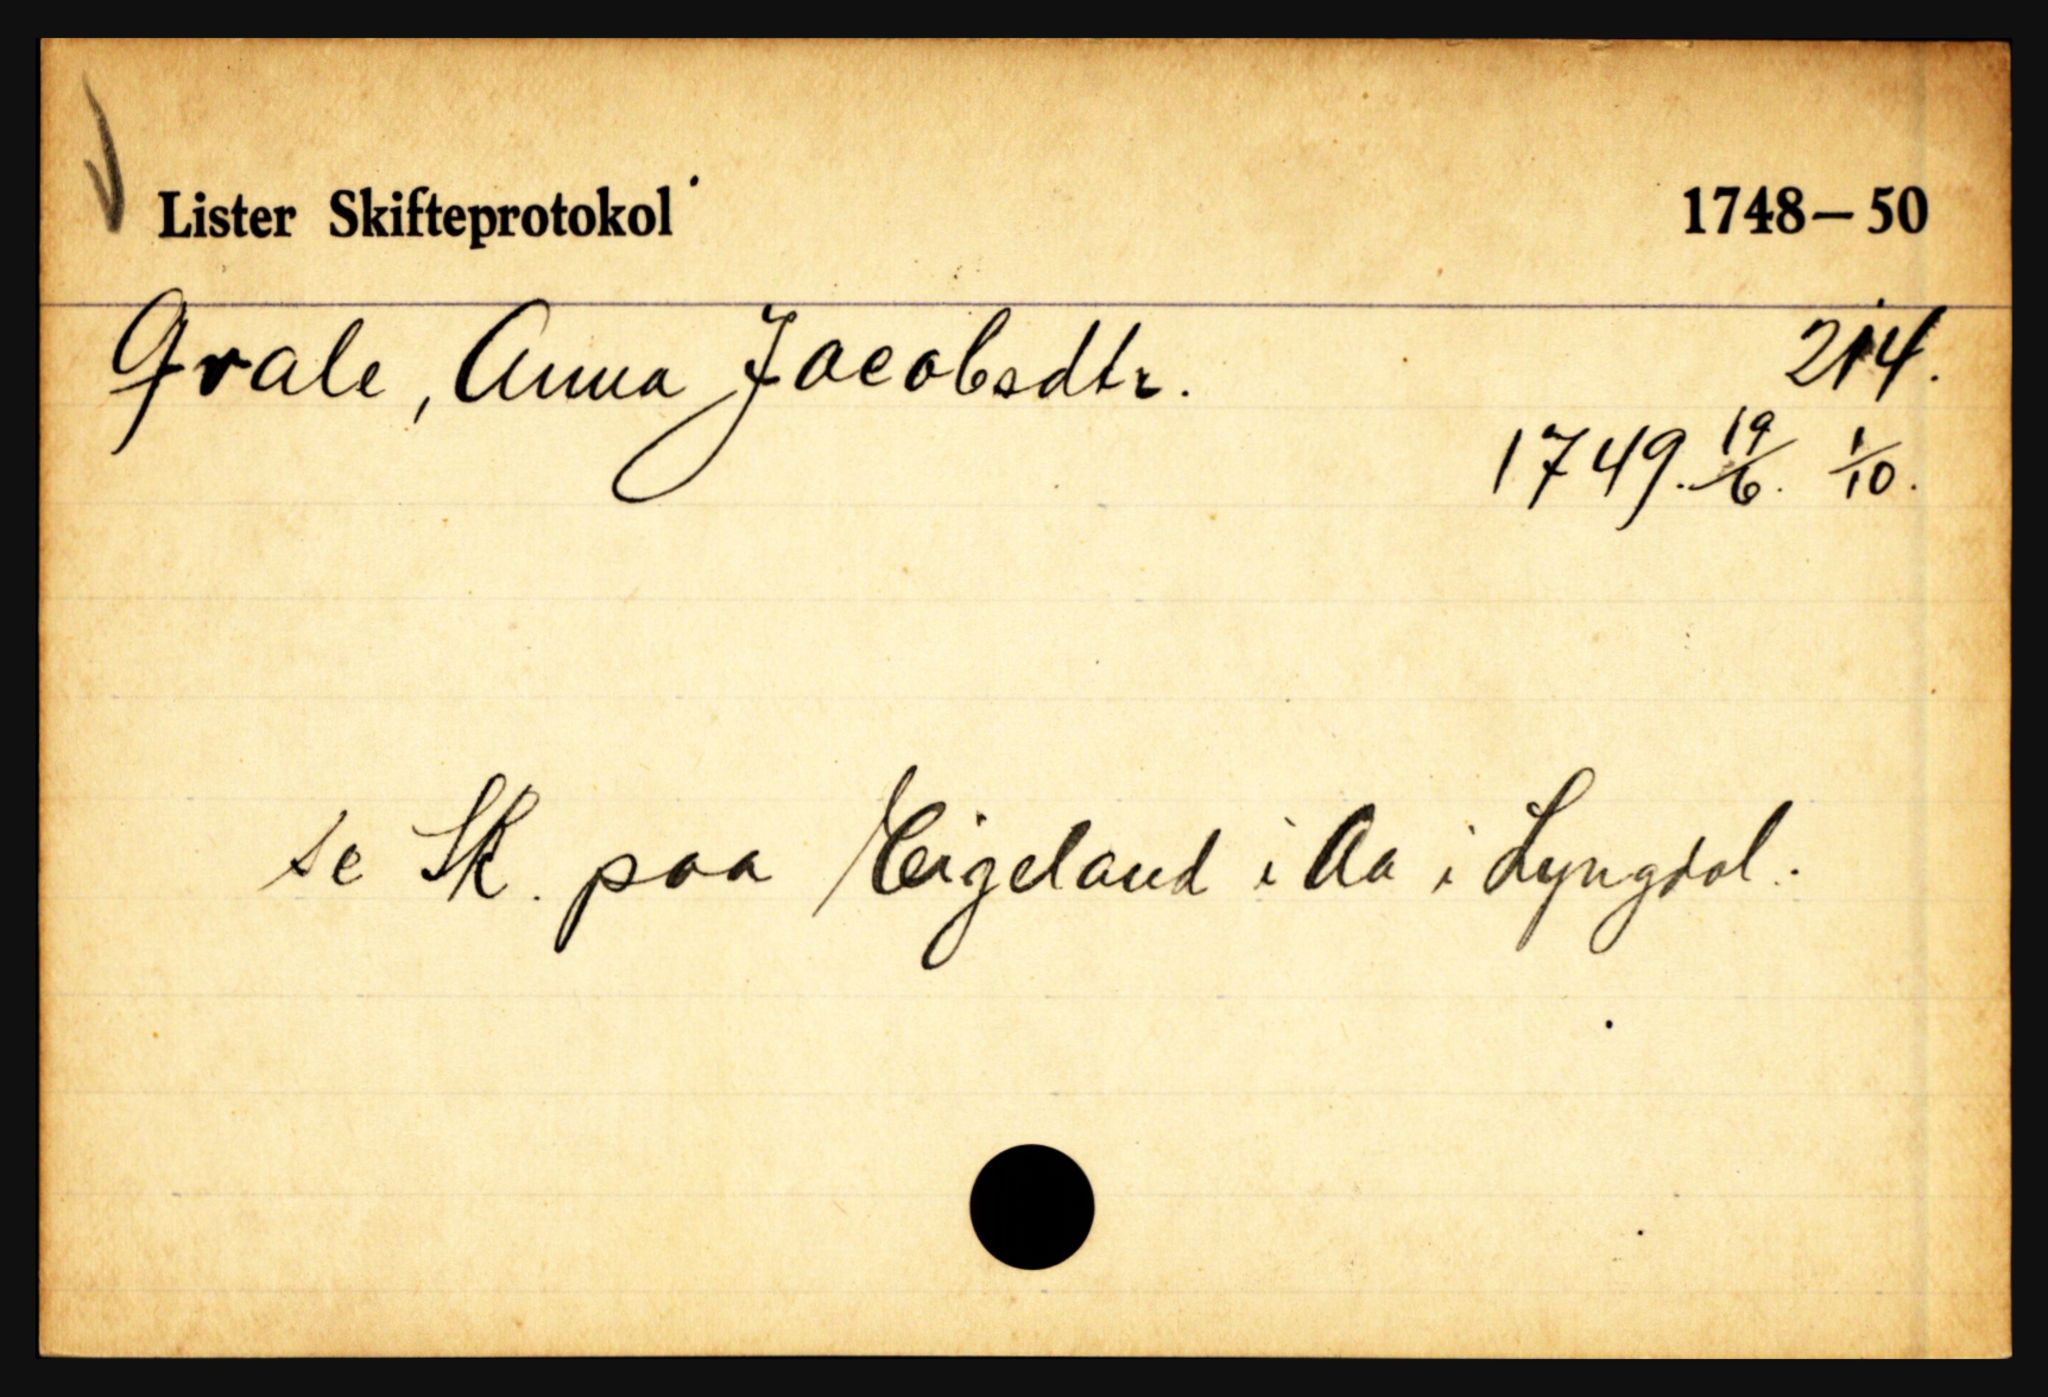 Lister Skifteprotokol 1748–50
Qvale, Anna Jacobsdtr. 214.
1749. 19/6. 1/10.
se Sk. paa /Eigeland i Aa i Lyngdal.